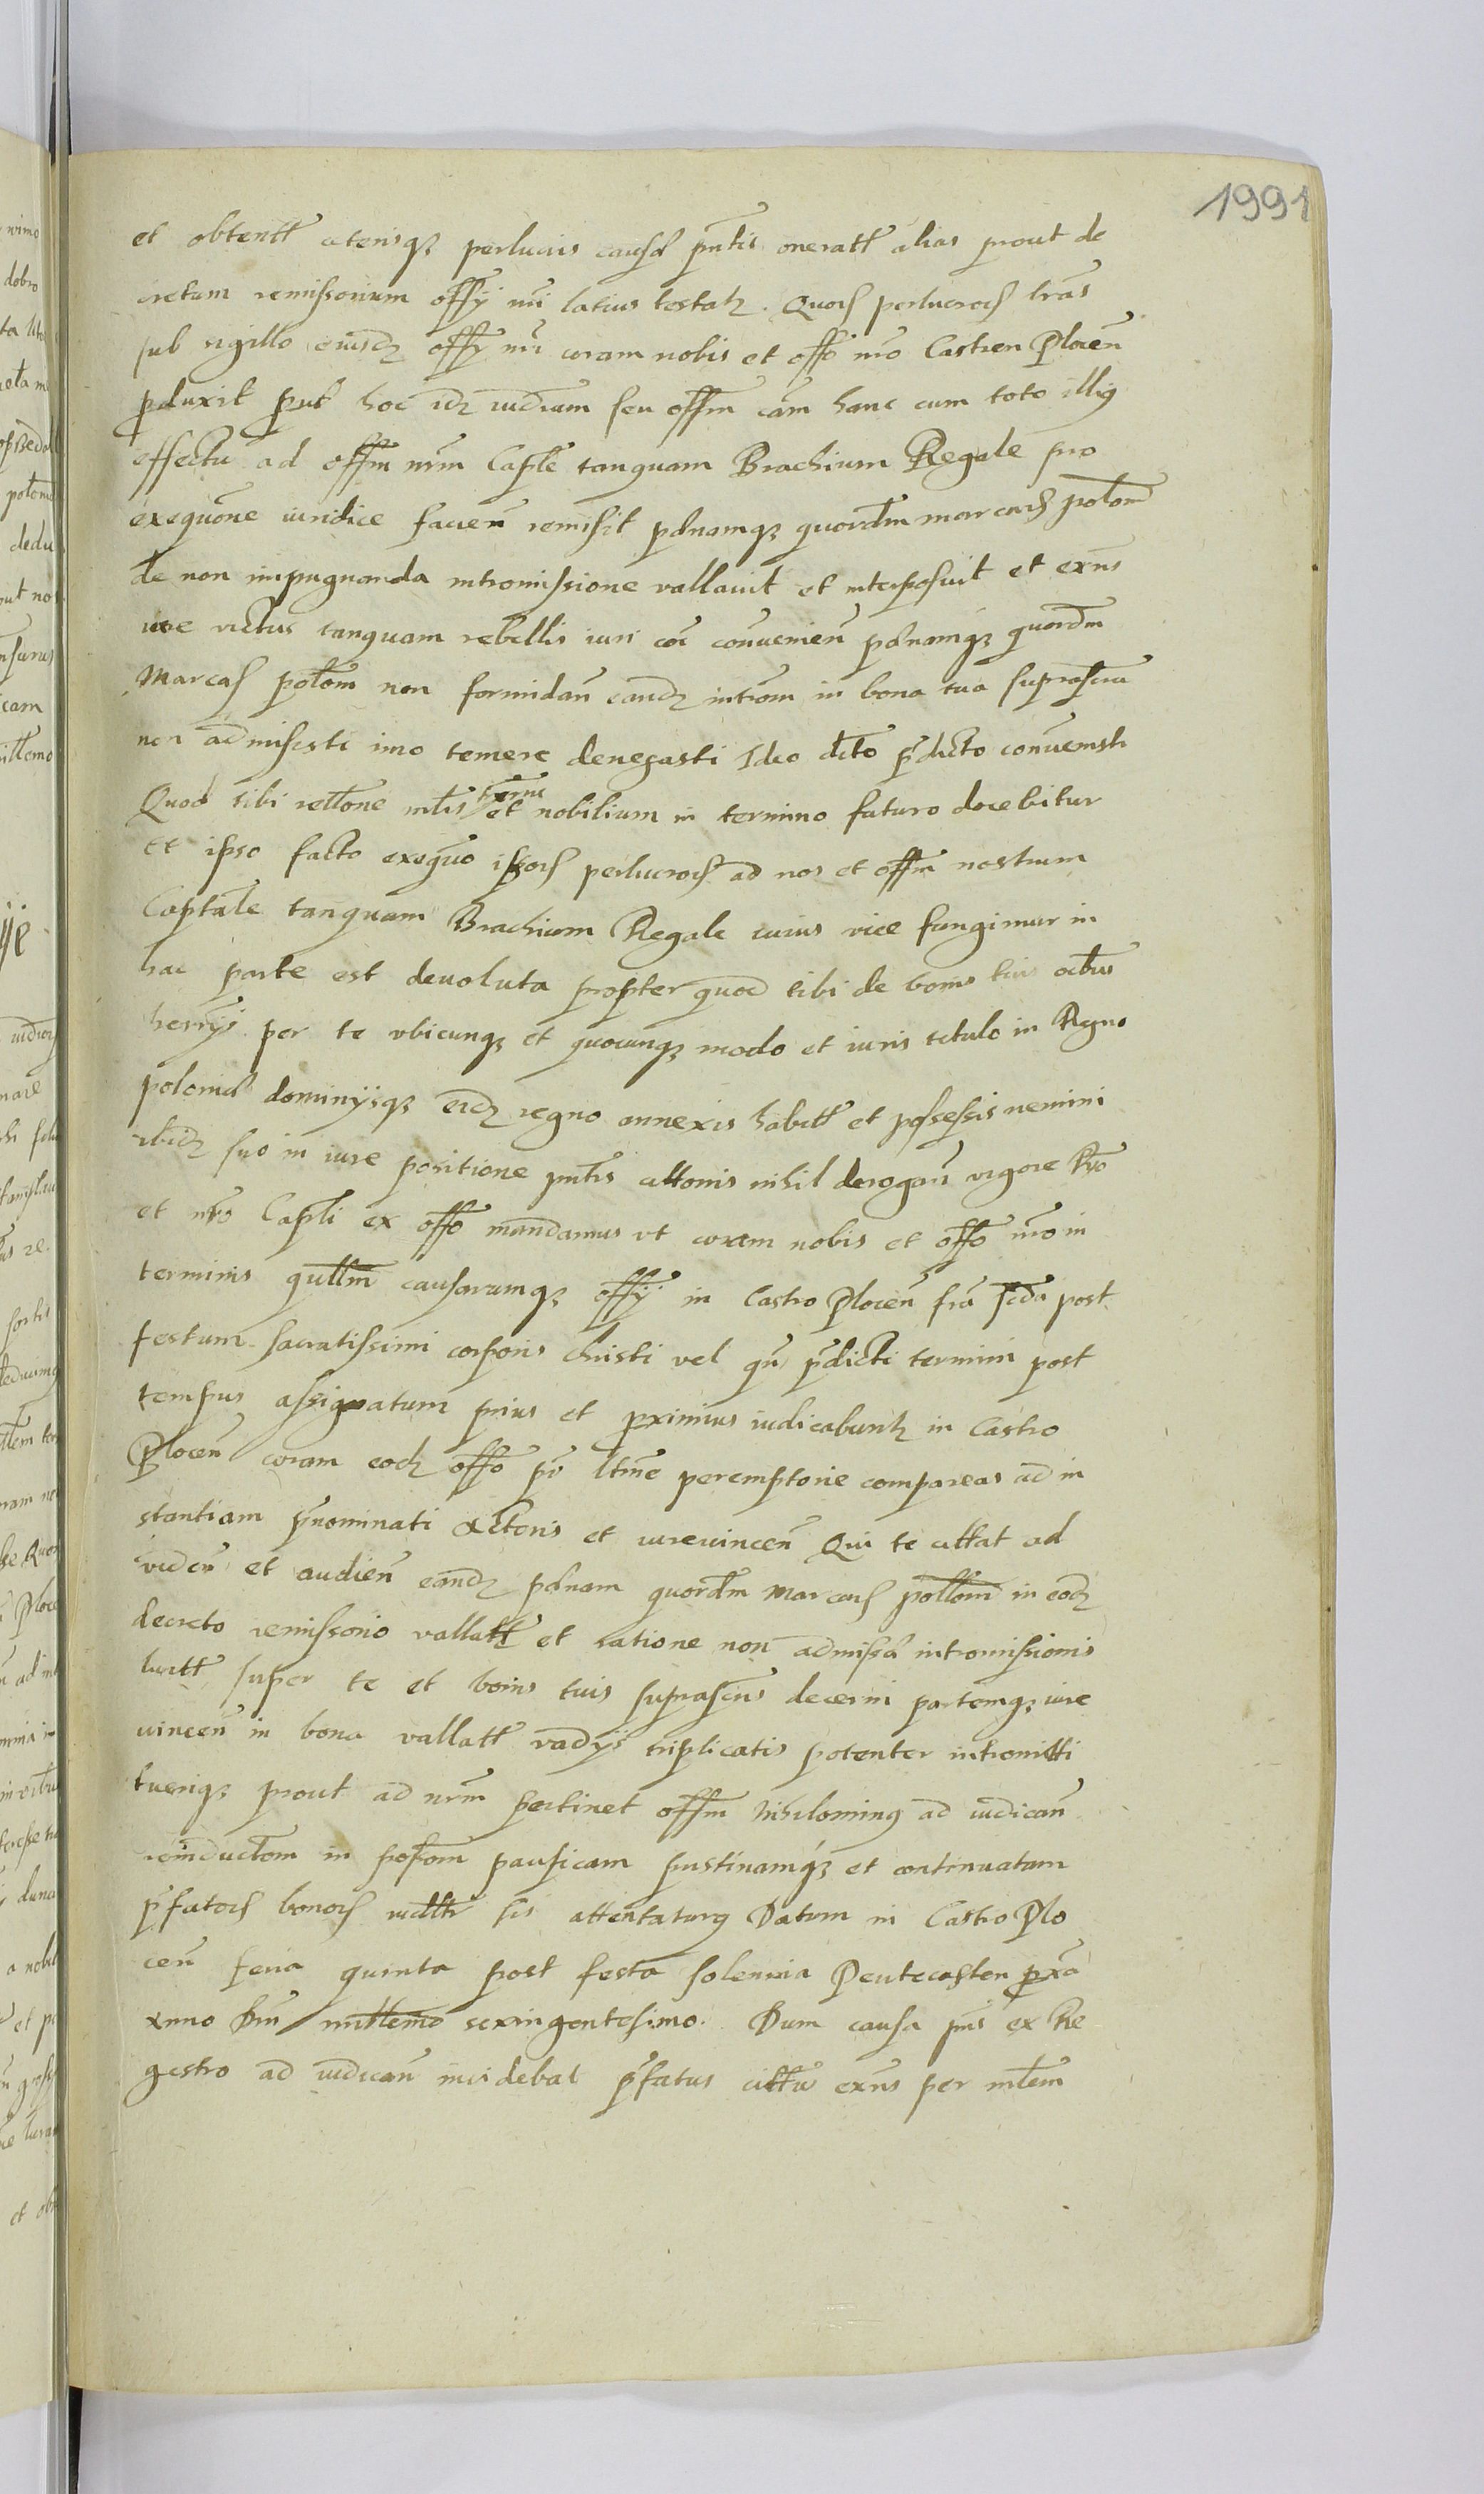 1991
et obtentt ceterisq perlucris causa pntis oneratt alias prout de
cretum remissorium offy nri latius testatz. Quorz perlucrorz lras
sub sigillo eiusdz offy nri coram nobis et offo nro Castren Plocen
pduxit put hoc idz iudicium seu offm cam hanc cum toto illig
effectu ad offm nrm Caple tanquam Brachium Regale pro
exequone iuridice facien remisit pdnamqz quordm marcarz polom
de non impugnanda intromissione vallavit et interposuit et exns
iure victus tanquam rebellis iuri coi convenien pdnamqz quordm
Marcarz polom non formidan eandz introm in bona tua suprascra
non admisisti imo temere denegasti Ideo dcto pdicto convenisti
Quod tibi relone mtis trmi et nobilium in termino futuro docebitur
et ipso facto exequo ipsorz perlucrorz ad nos et offm nostrum
Captale tanquam Brachium Regale cuius vice fungimur in
hac parte est devoluta propter quod tibi de bonis tuis oibus
herrys per te vbicunqz et quocunqz modo et iuris titulo in Regno
polonia dominysqz eidz regno annexis habitt et possessis nemini
ibidz suo in iure positione pntis cittonis nihil derogan vigore Kro
et nro Capli ex offo mandamus vt coram nobis et offo nro in
terminis qullm causarumqz offy in Castro Plocen fra scda post
festum sacratissimi corporis Christi vel qn pdicti termini post
tempus assignatum prius et pximius iudicabuntz in Castro
Plocen coram eodz offo pr ltme peremptorie compareas ad in
stantiam pnominati Actoris et iurevincen Qui te cittat ad
viden et audien eandz pdnam quordm Marcarz pollom in eodz
decreto remissorio vallatt et ratione non admissa intromissionis
luitt super te et bonis tuis suprascris decerni partemqz iure
vincen in bona vallatt vadys triplicatis potenter intromitti
tueriqz prout ad nrm pertinet offm Nihilominq ad iudican
reinductom in posom pacificam pristinamqz et continuatam
pfatorz bonorz iudltr sis attentaturq Datum in Castro Plo
cen feria quinta post festa solennia Pentecosten pxa
Anno Dni millemo sexingentesimo. Dum causa pns ex Re
gestro ad iudican incidebat pfatus cittus exns per mltem